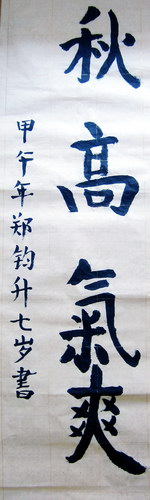 秋高氣爽
甲午年郑钧升七岁書